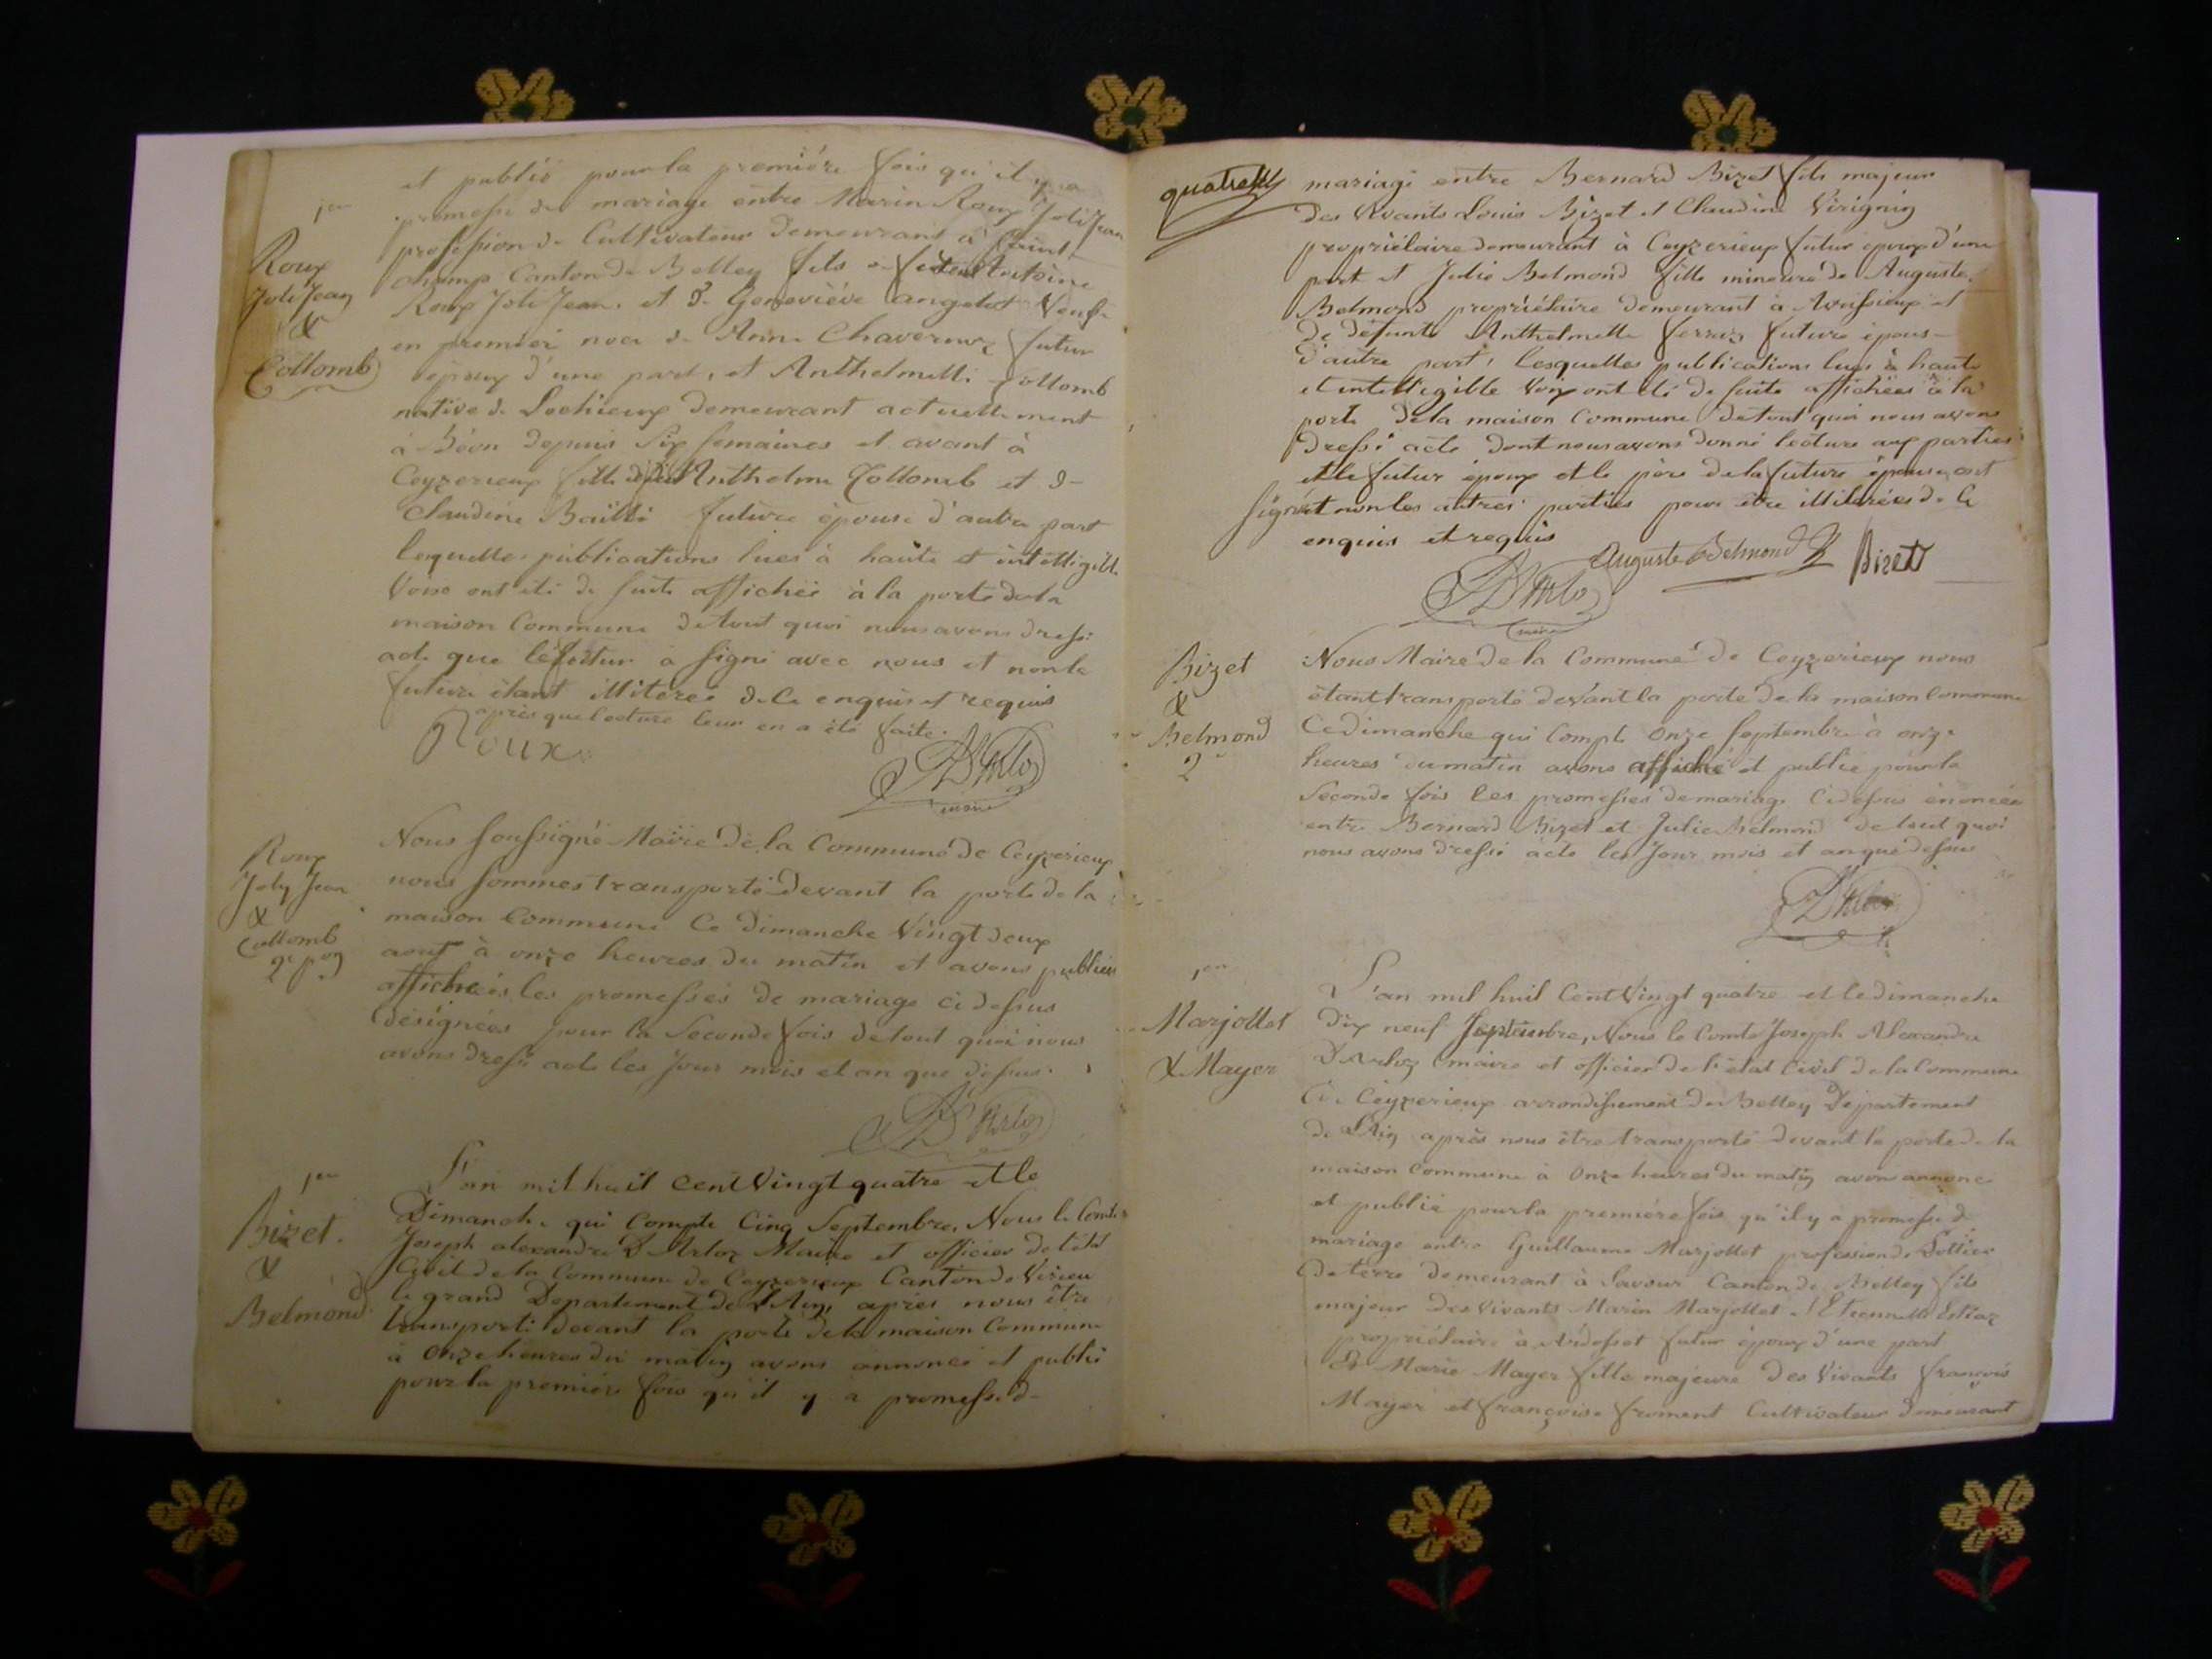 et publié pour la première fois qu'il y a
1er
promesse de mariage entre Marin Roux Joli Jean
profession de Cultivateur demeurant à Saint
Roux
Joli Jean
&
Collomb
champ Canton de Belley fils de Antoine
Roux Joli Jean et de Geneviève angelot Veuf
en premier noces de Anne Chaveroux futur
époux d'une part, et Anthelmette Collomb
native de Lochieux demeurant actuellement
à Béon depuis Six semaines et avant à
Ceyzerieux fille de Anthelme Collomb et de
Claudine Bailli future épouse d'autre part
lesquelles publications lues à haute et intelligible
Voix ont été de suite affichée à la porte de la
maison Commune de tout quoi nous avons dressé
acte que le futur a signé avec nous et non la
future étant illiterée de ce enquis et requis
après que lecture leur en a été faite.
Roux
D'Arloz
maire
Roux
Joly Jean
&
Collomb
2e pon
Nous Soussigné Maire de la Commune de Ceyzerieux
nous sommes transporté devant la porte de la
maison Commune Ce Dimanche Vingt deux
aout à onze heures du matin et avons publiées
affichées les promesses de mariage ci dessus
désignées pour la Seconde fois de tout quoi nous
avons dressé acte les Jour mois et an que dessus.
D'Arloz
1er
Bizet
&
Belmond
L'an mil huit Cent Vingt quatre et le
Dimanche qui Compte Cinq Septembre, Nous le Comte
Joseph alexandre D'Arloz Maire et officier de l'état
Civil de la Commune de Ceyzerieux Canton de Virieu
le grand Departement de L'Ain, après nous être
transporté devant la porte de la maison Commune
à onze heures du matin avons annoncé et publié
pour la première fois qu'il y a promesse de
quatre
mariage entre Bernard Bizet fils majeur
des Vivants Louis Bizet et Claudine Virignin
propriétaire demeurant à Ceyzerieux futur époux d'une
part et Julie Belmond fille mineure de Auguste
Belmond propriétaire demeurant à Avrissieux et
de défunte Anthelmette ferraz future épouse
d'autre part, lesquelles publications lues à haute
et intelligible Voix ont été de suite affichées à la
porte de la maison Commune de tout quoi nous avons
dressé acte dont nous avons donné lecture aux parties
et le futur époux et le père de la future épouse ont
signé et non les autres parties pour être illiterées de ce
enquis et requis
Auguste Belmond
Bizet
D'Arloz
maire
Bizet
&
Belmond
2
Nous Maire de la Commune de Ceyzerieux nous
étant transporté devant la porte de la maison Commune
Ce dimanche qui Compte Onze Septembre à onze
heures du matin avons affiché et publié pour la
Seconde fois les promesses de mariage Cidessus énoncées
entre Bernard Bizet et Julie Belmond de tout quoi
nous avons dressé acte les Jour mois et an que dessus
D'Arloz
1er
Marjollet
& Mayer
L'an mil huit Cent Vingt quatre et le dimanche
dix neuf Septembre, Nous le Comte Joseph Alexandre
D'Arloz maire et officier de l'état Civil de la Commune
de Ceyzerieux arrondissement de Belley Departement
de L'Ain après nous être transporté devant la porte de la
maison Commune à Onze heures du matin avons annoncé
et publié pour la première fois qu'il y a promesse de
mariage entre Guillaume Marjollet profession de Pottier
de terre demeurant à Savour Canton de Belley fils
majeur des Vivants Marin Marjollet et Etiennette Estiaz
propriétaire à futur époux d'une part
Et Marie Mayer fille majeure des Vivants françois
Mayer et françoise froment Cultivateur demeurant